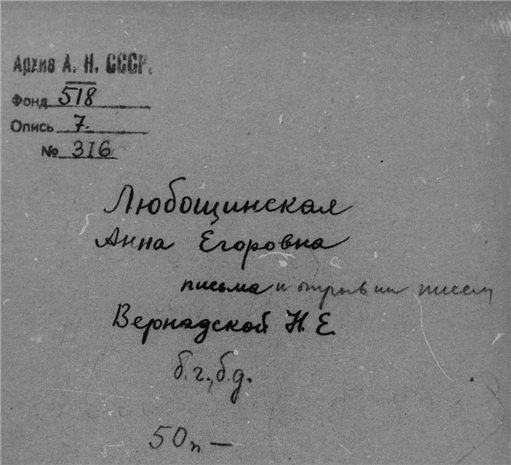 Архив А. Н. СССР.
Фонд 518
Опись 7.
№ 316
Любощинская
Анна Егоровна
письма и отрывки писем
Вернадской Н. Е
б.г., б.д.
50л —